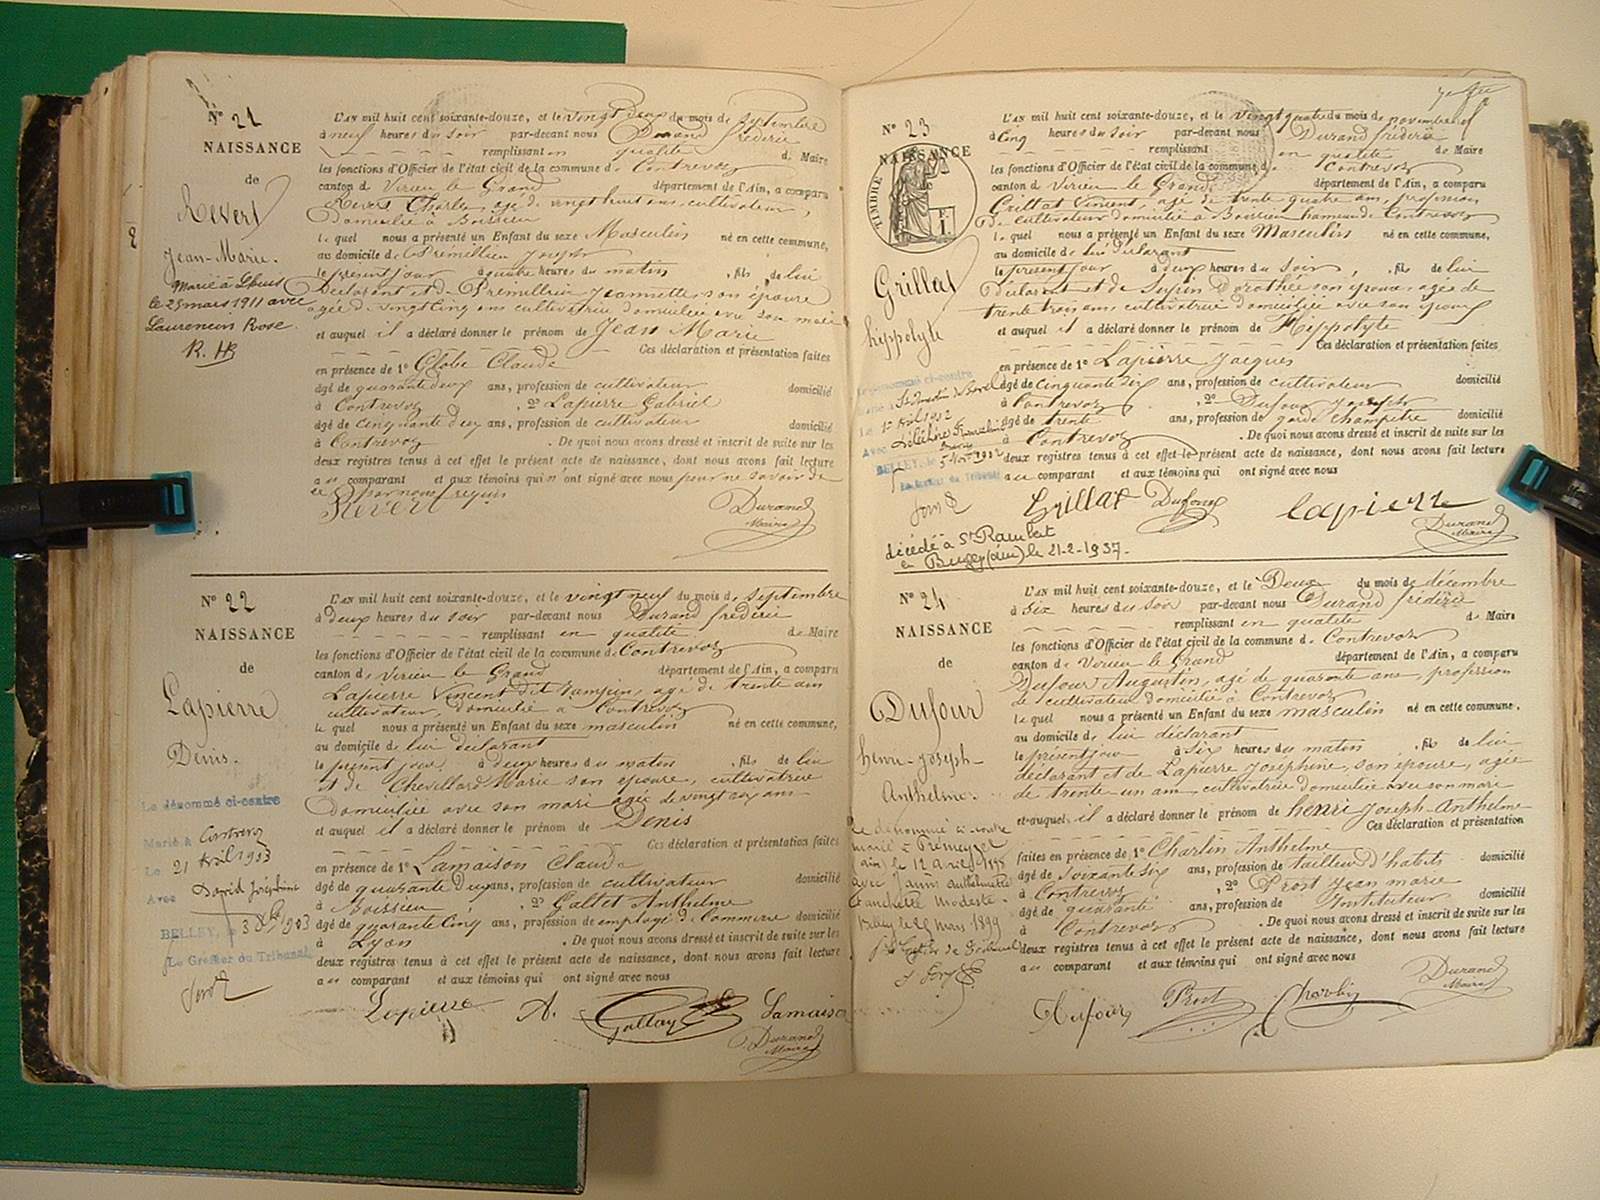 N° 21
NAISSANCE
de
Revert
Jean-Marie.
Marié à
le 25 mars 1911 avec
Laurencin Rose.
L'AN mil huit cent soixante-douze, et le vingt deux du mois de Septembre
à neuf heures du soir par-devant nous Durand frédéric
remplissant en qualité de Maire
les fonctions d'Officier de l'état civil de la commune de Contrevoz
canton de Virieu le Grand département de l'Ain, a comparu
Revert Charles, age de vingt huit ans, cultivateur,
domicilié à Boissieu
lequel nous a présenté un Enfant du sexe Masculin né en cette commune,
au domicile de Prémillieu Joseph
le présent jour à quatre heures du matin, fils de lui
Déclarant et de Prémillieu Jeannette, son épouse
agée de vingt cinq ans cultivatrice domiciliée avec son mari
et auquel il a déclaré donner le prénom de Jean Marie
Ces déclaration et présentation faites
en présence de 1° Globe Claude
âgé de quarante deux ans, profession de cultivateur domicilié
à Contrevoz, 2° Lapierre Gabriel
âgé de cinquante deux ans, profession de cultivateur domicilié
à Contrevoz. De quoi nous avons dressé et inscrit de suite sur les
deux registres tenus à cet effet le présent acte de naissance, dont nous avons fait lecture
au comparant et aux témoins qui n'ont signé avec nous pour ne savoir de
ce par nous requis
Revert Durand
Maire
N° 22
NAISSANCE
de
Lapierre
Denis.
Le dénommé ci-contre
Marié à Contrevoz
Le 21 Avril 1903
Avec David Joséphine
BELLEY, le 1903
Le Greffier du Tribunal
L'AN mil huit cent soixante-douze, et le vingt neuf du mois de Septembre
à deux heures du soir par-devant nous Durand frédéric
remplissant en qualité de Maire
les fonctions d'Officier de l'état civil de la commune de Contrevoz
canton de Virieu le Grand département de l'Ain, a comparu
Lapierre Vincent dit, age de trente ans
cultivateur, domicilié à Contrevoz
lequel nous a présenté un Enfant du sexe masculin né en cette commune,
au domicile de lui déclarant
le présent jour à deux heures du matin, fils de lui
et de Chevillard Marie son épouse, cultivatrice
Domiciliée avec son mari agée de vingt ans
et auquel il a déclaré donner le prénom de Denis
Ces déclaration et présentation faites
en présence de 1° Lamaison Claude
âgé de quarante ans, profession de cultivateur domicilié
à Boissieu, 2° Gallet Anthelme
âgé de quarante cinq ans, profession de employé de Commerce domicilié
à Lyon. De quoi nous avons dressé et inscrit de suite sur les
deux registres tenus à cet effet le présent acte de naissance, dont nous avons fait lecture
au comparant et aux témoins qui ont signé avec nous
Lapierre A. Gallay Lamaison
Durand
Maire
N° 23
NAISSANCE
TIMBRE
Grillat
hippolyte
Le dénommé ci-contre
Le 1er Avril 1902
Avec
BELLEY, le 1902
Le Greffier du Tribunal
décédé à St Rambert
en Bugey (Ain) le 21-2-1937.
L'AN mil huit cent soixante-douze, et le vingt quatre du mois de novembre
à cinq heures du soir par-devant nous Durand frédéric
remplissant en qualité de Maire
les fonctions d'Officier de l'état civil de la commune de Contrevoz
canton de Virieu le Grand département de l'Ain, a comparu
Grillat Vincent, age de trente quatre ans, profession
de cultivateur domicilié à Boissieu hameau de Contrevoz
lequel nous a présenté un Enfant du sexe Masculin né en cette commune,
au domicile de lui déclarant
le présent jour à deux heures du soir, fils de lui
déclarant et de Dorothée son épouse, agée de
trente trois ans cultivatrice domiciliée avec son époux
et auquel il a déclaré donner le prénom de Hippolyte
Ces déclaration et présentation faites
en présence de 1° Lapierre Jacques
âgé de cinquante six ans, profession de cultivateur domicilié
à Contrevoz, 2° Dufour Joseph
âgé de trente ans, profession de garde champêtre domicilié
à Contrevoz. De quoi nous avons dressé et inscrit de suite sur les
deux registres tenus à cet effet le présent acte de naissance, dont nous avons fait lecture
au comparant et aux témoins qui ont signé avec nous
Grillat Dufour Lapierre
Durand
Maire
N° 24
NAISSANCE
de
Dufour
henri-Joseph-
Anthelme.
Le dénommé ci-contre
marié à Prémeyzel
(Ain) le 12 avril 1898
avec Janin Anthelmette
Franchette Modeste.
Belley le mars 1899
L'AN mil huit cent soixante-douze, et le Deux du mois de décembre
à Six heures du Soir par-devant nous Durand frédéric
remplissant en qualité de Maire
les fonctions d'Officier de l'état civil de la commune de Contrevoz
canton de Virieu le Grand département de l'Ain, a comparu
Dufour Augustin, agé de quarante ans, profession
de cultivateur domicilié à Contrevoz
lequel nous a présenté un Enfant du sexe masculin né en cette commune,
au domicile de lui déclarant
le présent jour à six heures du matin, fils de lui
déclarant et de Lapierre Joséphine, son épouse, agée
de trente un ans cultivatrice domiciliée avec son mari
et auquel il a déclaré donner le prénom de henri Joseph-Anthelme
Ces déclaration et présentation
faites en présence de 1° Charlin Anthelme
âgé de soixante six ans, profession de tailleur d'habits domicilié
à Contrevoz, 2° Prost Jean marie
âgé de quarante ans, profession de Instituteur domicilié
à Contrevoz. De quoi nous avons dressé et inscrit de suite sur les
deux registres tenus à cet effet le présent acte de naissance, dont nous avons fait lecture
au comparant et aux témoins qui ont signé avec nous
Dufour Prost Charlin
Durand
Maire